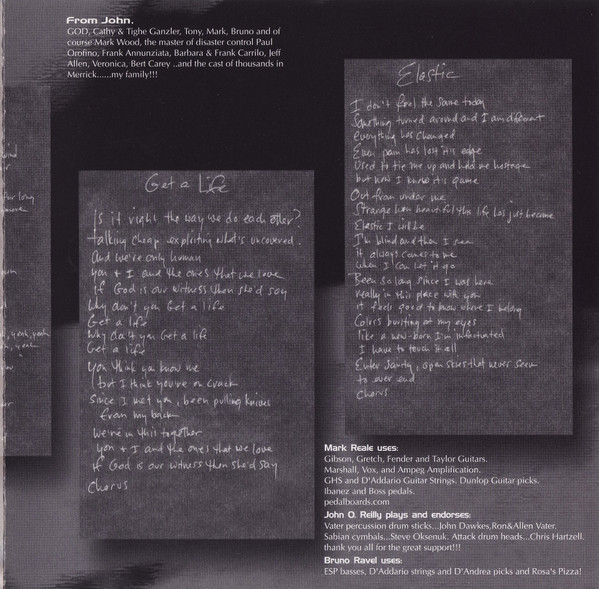 From John,
GOD, Cathy & Tighe Ganzler, Tony, Mark, Bruno and of
course Mark Wood, the master of disaster control Paul
Orofino, Frank Annunziata, Barbara & Frank Carrilo, Jeff
Allen, Veronica, Bert Carey ..and the cast of thousands in
Merrick......my family!!!
Get a Life
Is it right the way we do each other?
talking cheap exploiting what's uncovered.
And we're only human
you & I and the ones that we love
if God is our witness then she'd say
Why don't you Get a life
Get a life
Why don't you Get a life
Get a life
You think ya know me
but I think you're on crack
Since I met you, been pulling knives
from my back
We're in this together
you & I and the ones that we love
if God is our witness then she'd say
Chorus
Elastic
I don't feel the same today
Something turned around and I am different
everything has changed.
Even pain has lost it's edge
Used to tie me up and hold me hostage
but now I know it's game
Out from under me
Strange how beautiful this life has just become
Elastic I will be
I'm blind and then I see
it always comes to me
When I can let it go
Been so long since I was here
really in this place with you
it feels good to know where I belong
Colors bursting at my eyes
like a new-born I'm infatuated
I have to touch it all
Enter Sanity, open skies that never seem
to ever end
Chorus
Mark Reale uses:
Gibson, Gretch, Fender and Taylor Guitars.
Marshall, Vox, and Ampeg Amplification.
GHS and D'Addario Guitar Strings. Dunlop Guitar picks.
Ibanez and Boss pedals.
pedalboards.com
John O. Reilly plays and endorses:
Vater percussion drum sticks...John Dawkes,Ron&Allen Vater.
Sabian cymbals...Steve Oksenuk. Attack drum heads...Chris Hartzell.
thank you all for the great support!!!
Bruno Ravel uses:
ESP basses, D'Addario strings and D'Andrea picks and Rosa's Pizza!